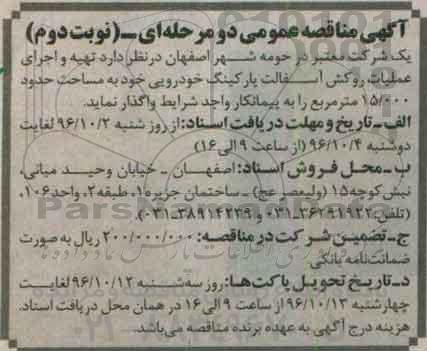 آگهی مناقصه عمومی دو مرحله‌ای ـ (نوبت دوم)
یک شرکت معتبر در حومه شهر اصفهان در نظر دارد تهیه و اجرای
عملیات روکش آسفالت پارکینگ خودرویی خود به مساحت حدود
۱۵/۰۰۰ مترمربع را به پیمانکار واجد شرایط واگذار نماید.
الف ـ تاریخ و مهلت دریافت اسناد: از روز شنبه ۹۶/۱۰/۲ لغایت
دوشنبه ۹۶/۱۰/۴ (از ساعت ۹ الی ۱۶)
ب ـ محل فروش اسناد: اصفهان ـ خیابان وحید میانی،
نبش کوچه ۱۵ (ولیعصر عج) ـ ساختمان جزیره ۱، طبقه ۲، واحد ۱۰۶،
(تلفن: ۳۶۲۹۱۹۲۲-۰۳۱ و ۳۸۹۱۴۲۳۹-۰۳۱)
ج ـ تضمین شرکت در مناقصه: ۲۰۰/۰۰۰/۰۰۰ ریال به صورت
ضمانت‌نامه بانکی
د ـ تاریخ تحویل پاکت‌ها: روز سه‌شنبه ۹۶/۱۰/۱۲ لغایت
چهارشنبه ۹۶/۱۰/۱۳ از ساعت ۹ الی ۱۶ در همان محل دریافت اسناد.
هزینه درج آگهی به عهده برنده مناقصه می‌باشد.
ParsNamadData